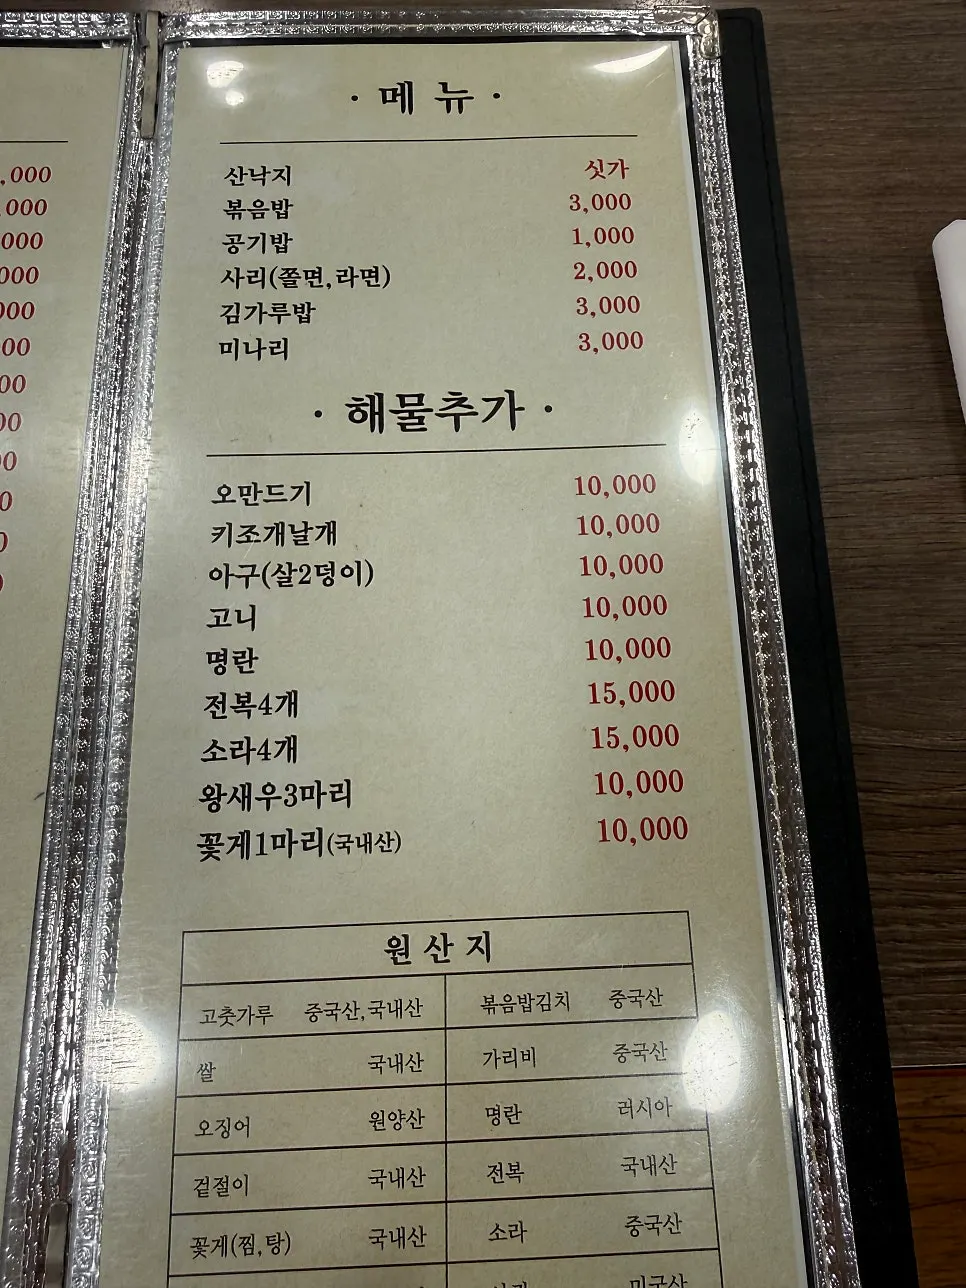 ,000
,000
,000
000
000
00
00
00
0
0
0
· 메 뉴 ·
산낙지 싯가
볶음밥 3,000
공기밥 1,000
사리(쫄면,라면) 2,000
김가루밥 3,000
미나리 3,000
· 해물추가 ·
오만드기 10,000
키조개날개 10,000
아구(살2덩이) 10,000
고니 10,000
명란 10,000
전복4개 15,000
소라4개 15,000
왕새우3마리 10,000
꽃게1마리(국내산) 10,000
원 산 지
고춧가루 중국산,국내산 볶음밥김치 중국산
쌀 국내산 가리비 중국산
오징어 원양산 명란 러시아
겉절이 국내산 전복 국내산
꽃게(찜,탕) 국내산 소라 중국산
미국산